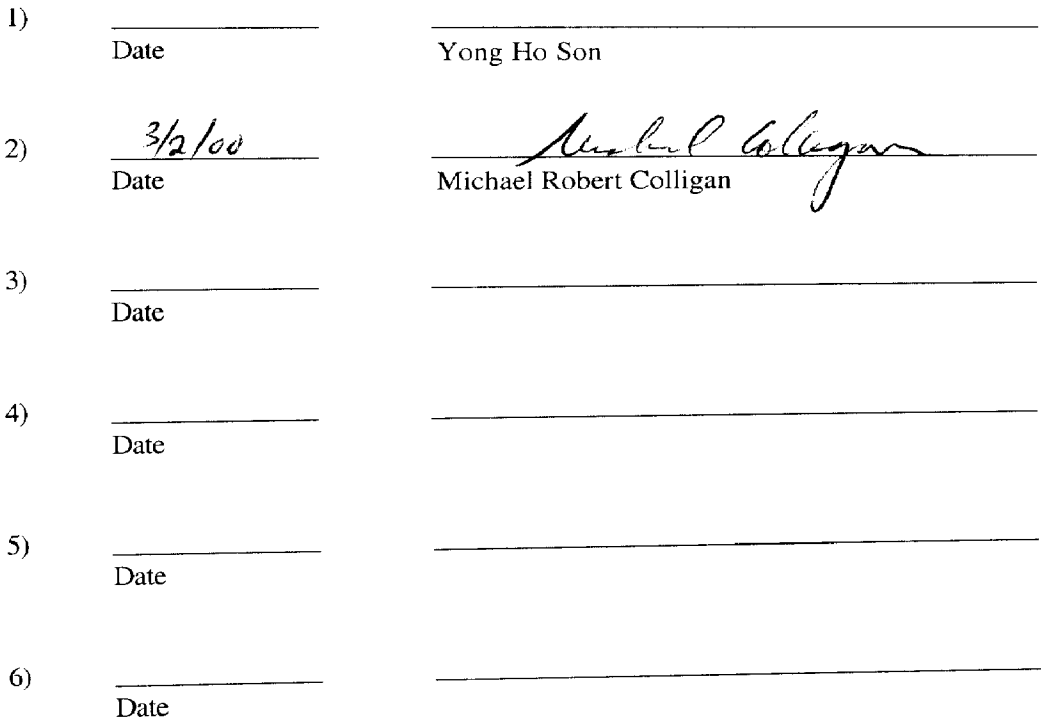 1)
Date Yong Ho Son
2) 3/2/00 Michael Colligan
Date Michael Robert Colligan
3)
Date
4)
Date
5)
Date
6)
Date